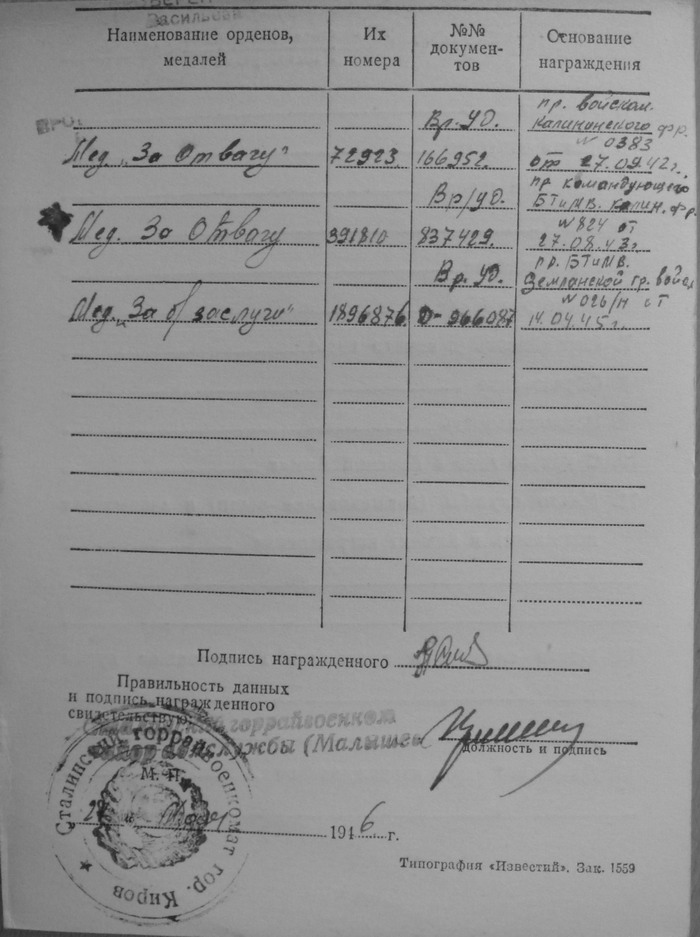 Васильев
Наименование орденов, медалей
Их номера
№№ документов
Основание награждения
Вр. уд.
пр. войскам
Калининского фр.
N 0383
Мед. „За Отвагу"
72923
166952.
от 27.09.42г.,
Вр/уд.
пр командующего
БТиМВ. Калин. фр.
N 824 от
Мед. За Отвагу
391810
837429.
27.08.43г.
Вр. уд.
пр. БТиМВ.
Земландской гр. войск
N 026/н от
Мед. „За б/заслуги"
1896876
966087
14.04.45г.
Подпись награжденного
Правильность данных
и подпись награжденного
свидетельствую:
горрайвоенком
службы (Малышев
должность и подпись
М. П.
Сталинский горрайвоенкомат гор. Киров
1946 г.
Типография «Известий». Зак. 1559